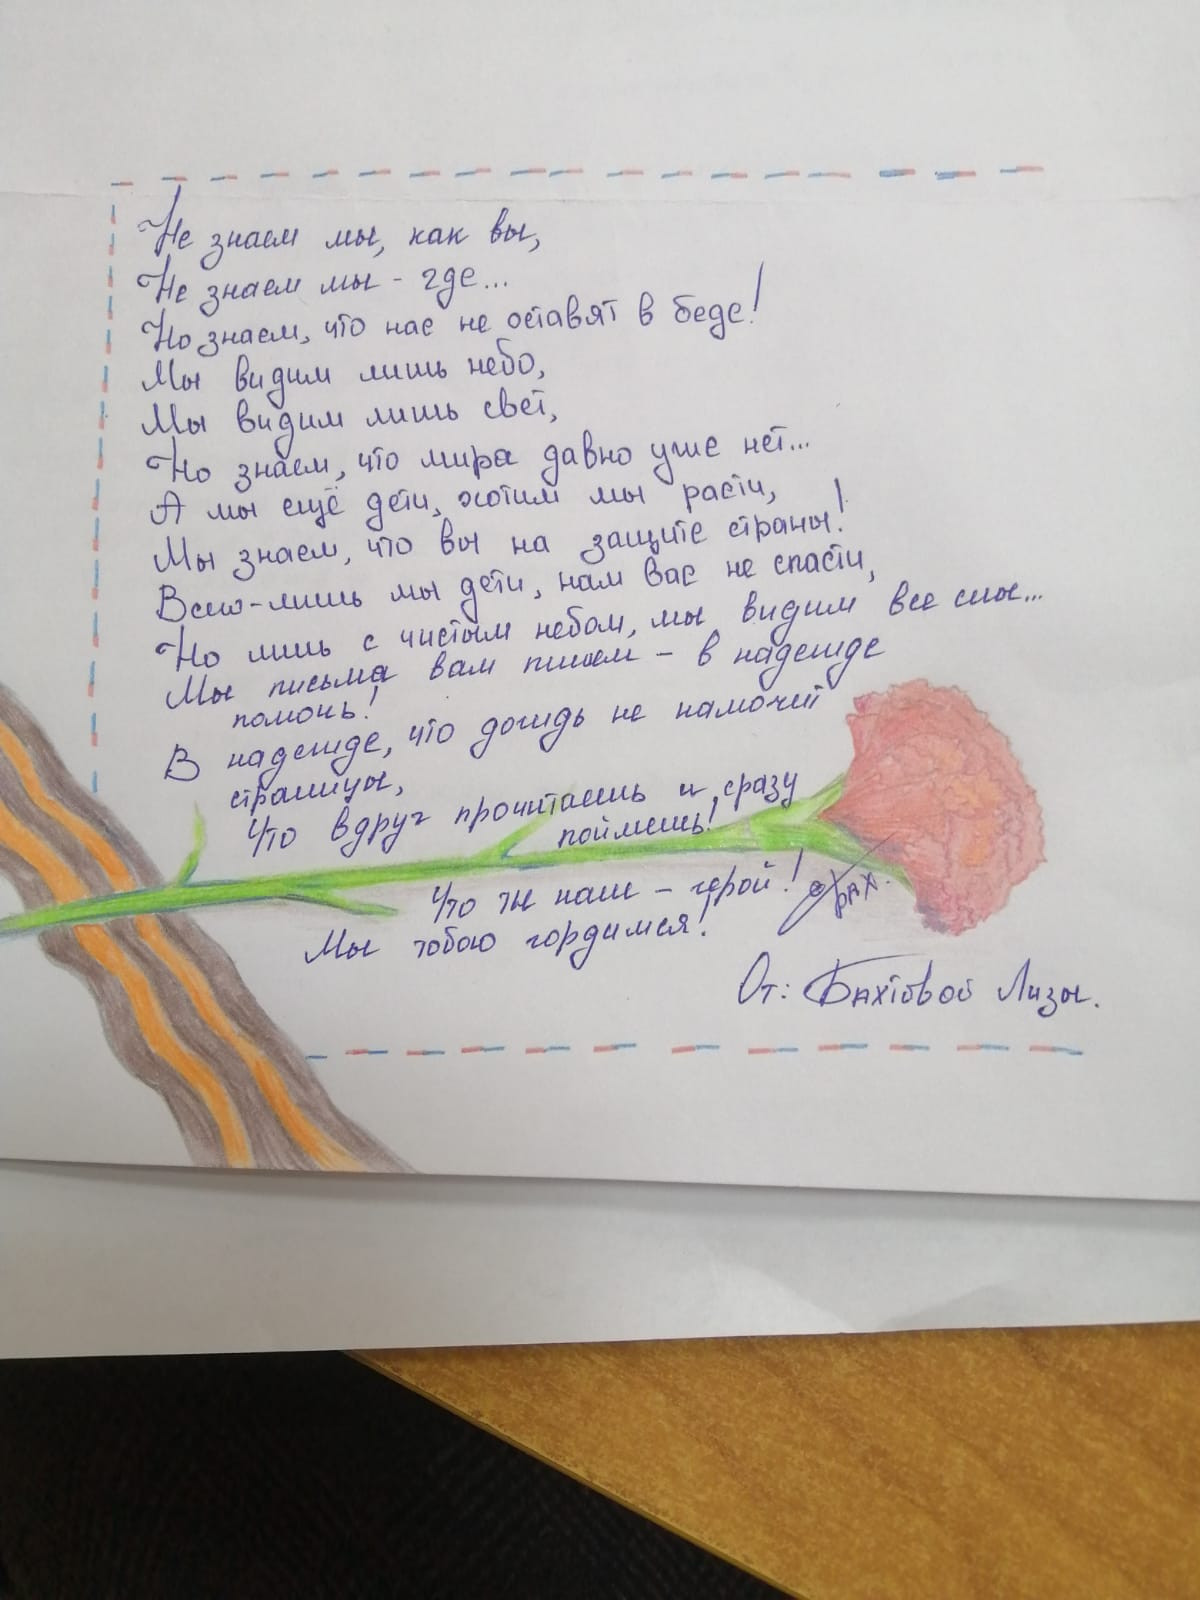 Не знаем мы, как вы,
Не знаем мы - где...
Но знаем, что нас не оставят в беде!
Мы видим лишь небо,
Мы видим лишь свет,
Но знаем, что мира давно уже нет...
А мы ещё дети, хотим мы расти,
Мы знаем, что вы на защите страны!
Всего-лишь мы дети, нам вас не спасти,
Но лишь с чистым небом, мы видим все сны...
Мы письма вам пишем - в надежде
помочь!
В надежде, что дождь не намочит
страницы,
Что вдруг прочитаешь и сразу
поймешь!
Что ты наш - герой!
Мы тобою гордимся!
От: Лизы.